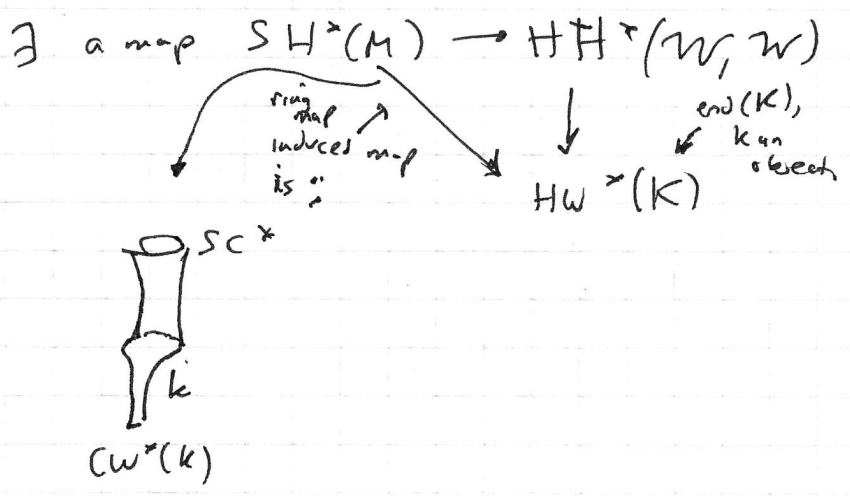 ∃ a map SH*(M) → HH*(W, W)
ring map
induced map
is :
end(K),
K an
object
HW*(K)
SC*
K
CW*(K)